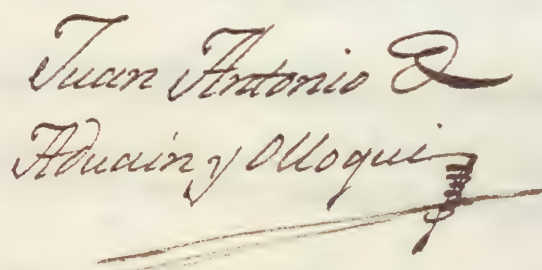 Juan Antonio D
Aduaín y Olloqui